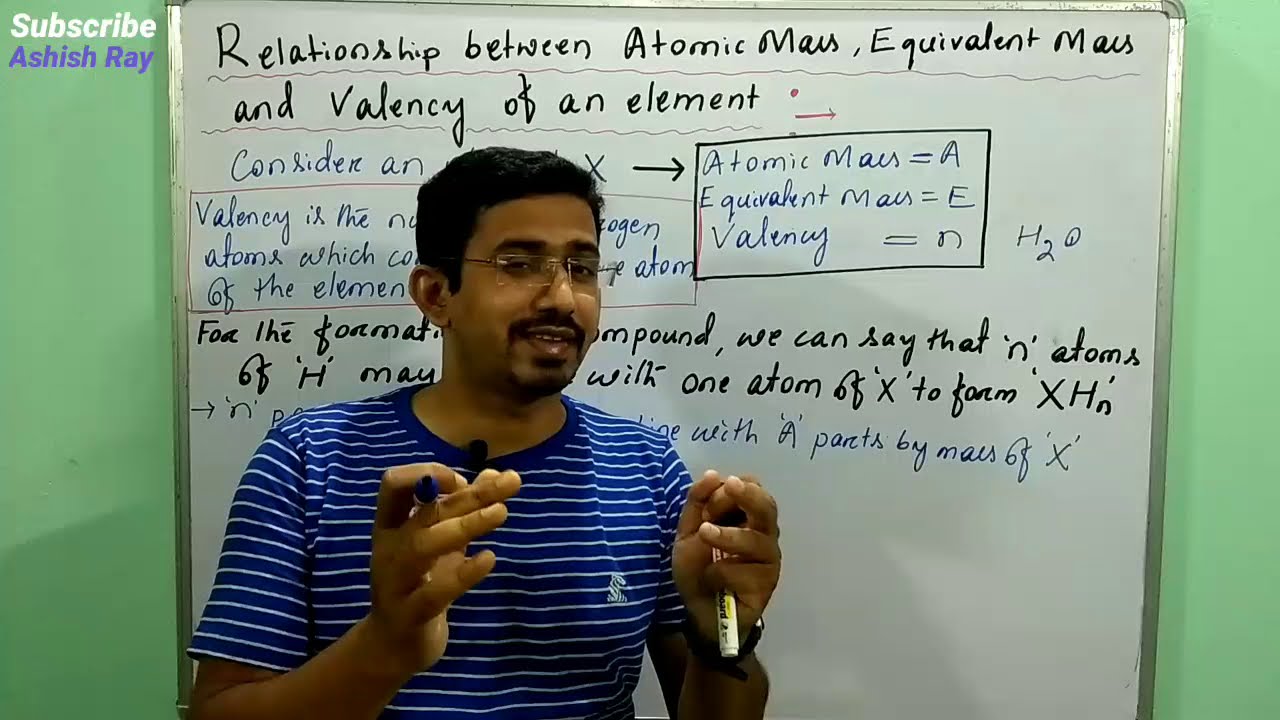 Subscribe
Ashish Ray
Relationship between Atomic Mass, Equivalent Mass
and Valency of an element :→
Consider an X → Atomic Mass = A
Equivalent Mass = E
Valency = n
H₂O
Valency is the
atoms which atom
of the
For the compound, we can say that 'n' atoms
of 'H' may with one atom of 'X' to form 'XHₙ'
→ 'n' with 'A' parts by mass of 'X'